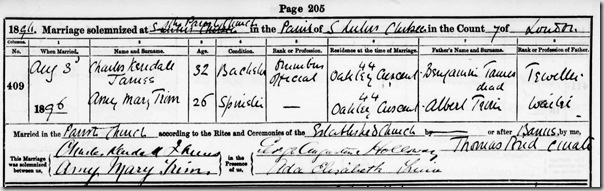 Page 205
1896. Marriage solemnized at the Parish Church in the Parish of S Lukes Chelsea in the County of London
Columns:— 1 2 3 4 5 6 7 8
No. When Married. Name and Surname. Age. Condition. Rank or Profession. Residence at the time of Marriage. Father's Name and Surname. Rank or Profession of Father.
409 Aug 3 1896 Charles Kendall James 32 Bachelor Omnibus Official 44 Oakley Crescent Benjamin James dead Jeweller
Amy Mary Trim 26 Spinster — 44 Oakley Crescent Albert Trim
Married in the Parish Church according to the Rites and Ceremonies of the Established Church by or after Banns, by me,
This Marriage was solemnized between us, Charles Kendall James Amy Mary Trim in the Presence of us, Augustine Holloway Ida Elizabeth Trim Thomas Bird curate